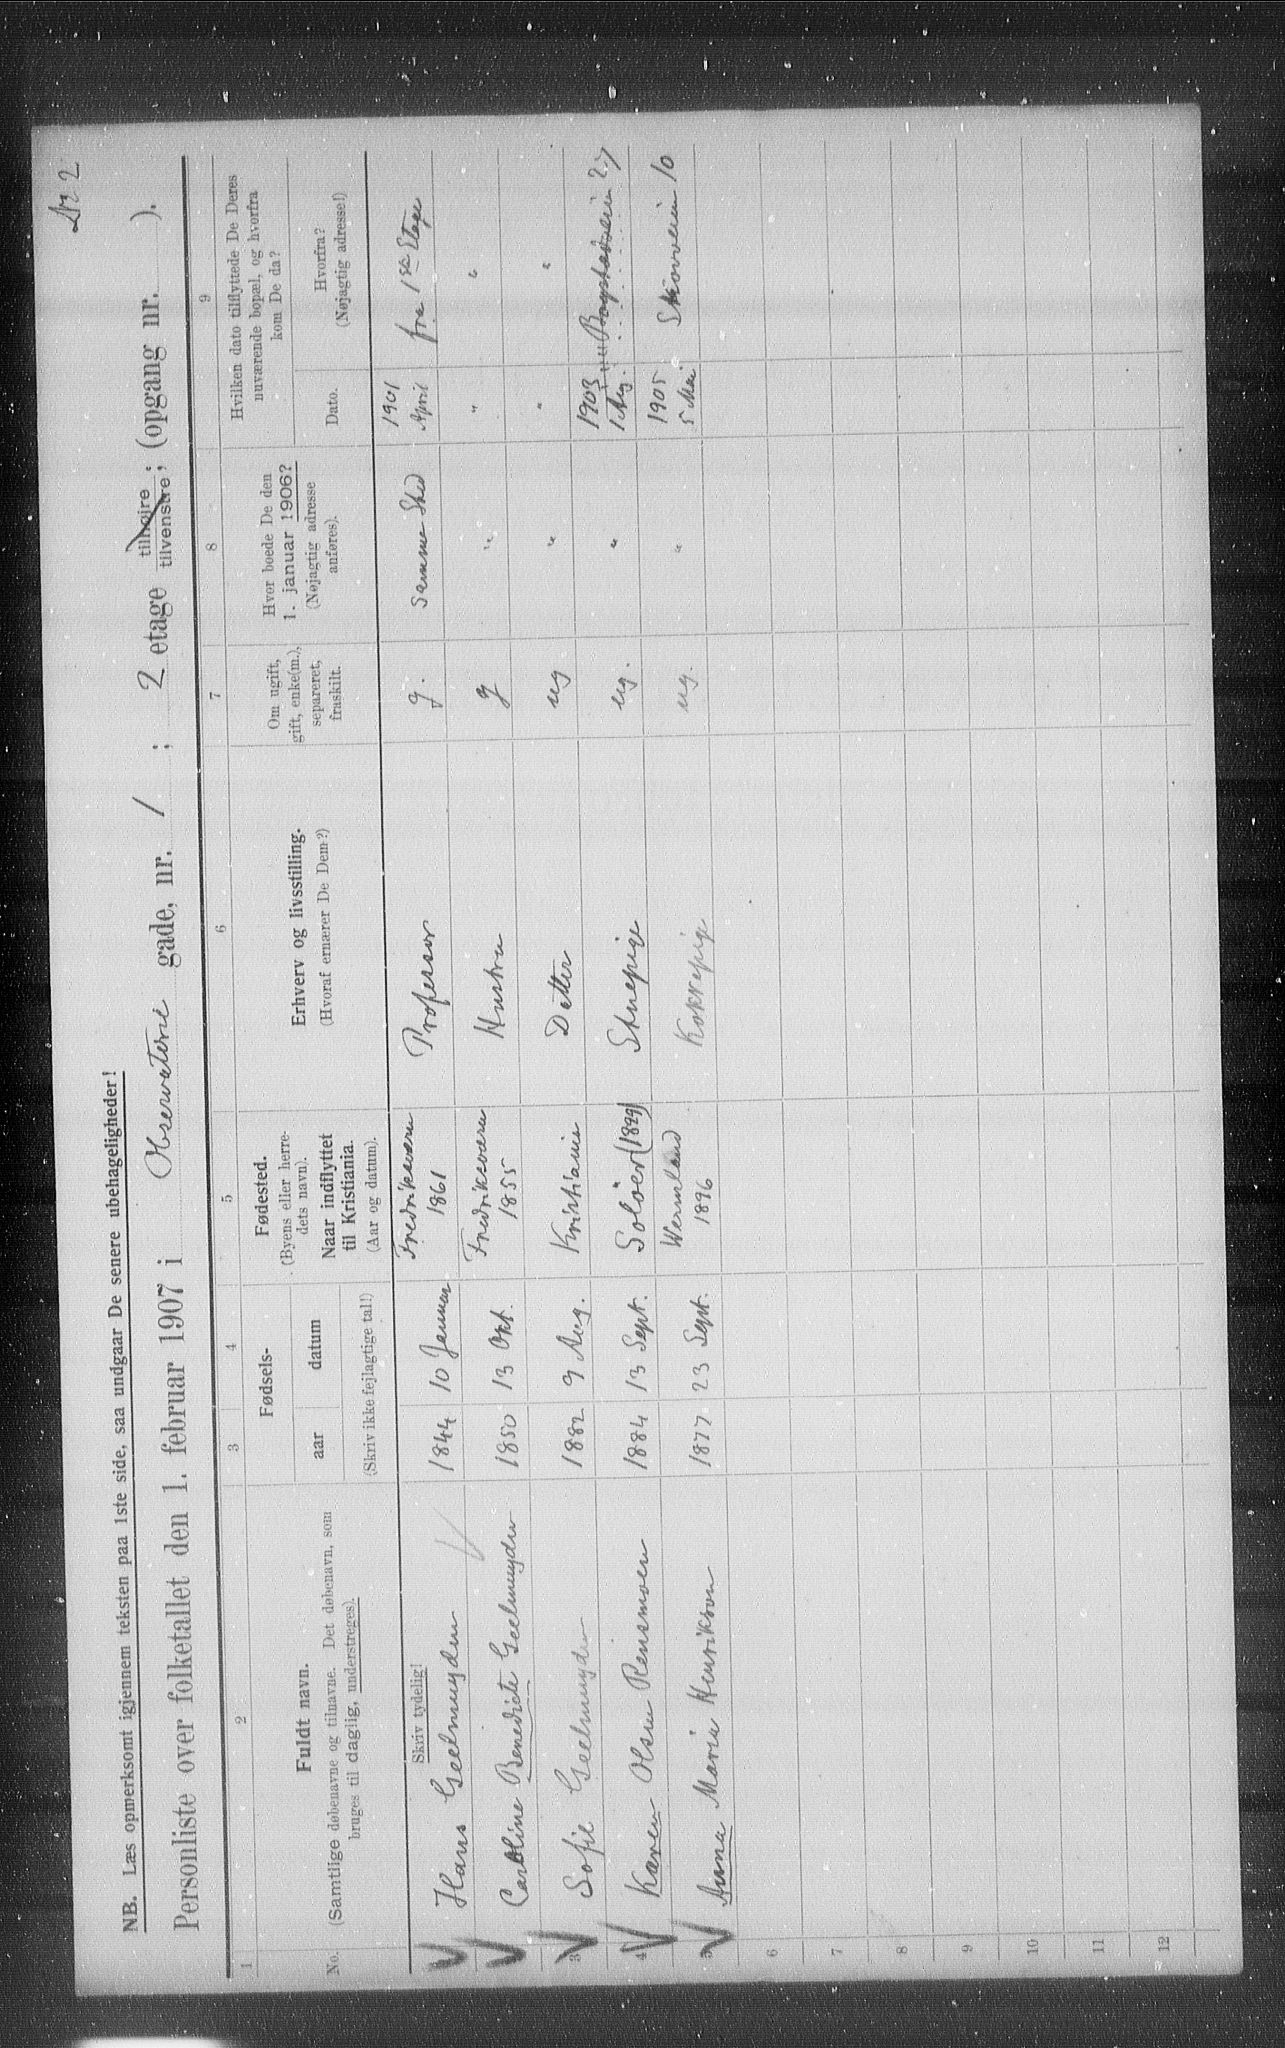 Nr 2
NB. Læs opmerksomt igjennem teksten paa 1ste side, saa undgaar De senere ubehageligheder!
Personliste over folketallet den 1. februar 1907 i Observatorie gade, nr. 1 ; 2 etage tilhøjre tilvenstre; (opgang nr. ).
1 2 3 4 5 6 7 8 9
No.
Fuldt navn.
(Samtlige døbenavne og tilnavne. Det døbenavn, som
bruges til daglig, understreges).
Fødsels-
aar datum
(Skriv ikke fejlagtige tal!)
Fødested.
(Byens eller herre-
dets navn).
Naar indflyttet
til Kristiania.
(Aar og datum).
Erhverv og livsstilling.
(Hvoraf ernærer De Dem?)
Om ugift,
gift, enke(m.),
separeret,
fraskilt.
Hvor boede De den
1. januar 1906?
(Nøjagtig adresse
anføres).
Hvilken dato tilflyttede De Deres
nuværende bopæl, og hvorfra
kom De da?
Dato.
Hvorfra?
(Nøjagtig adresse!)
Skriv tydelig!
Hans Geelmuyden 1844 10 Januar Fredriksværn 1861 Professor g. Samme Sted 1901 April fra 1ste Etage
Caroline Benedicte Geelmuyden 1850 13 Okt. Fredriksværn 1855 Hustru g " " "
3 Sofie Geelmuyden 1882 9 Aug. Kristiania Datter ug " " "
4 Karen Olsen Rensmoen 1884 13 Sept. Soløer (1899) Stuepige ug. " 1903 1 Aug. Bogstadveien 27
5 Anna Maria Henrikson 1877 23 Sept. Wermland 1896 Kokkepige ug. " 1905 5 Mai Skovveien 10
6
7
8
9
10
11
12